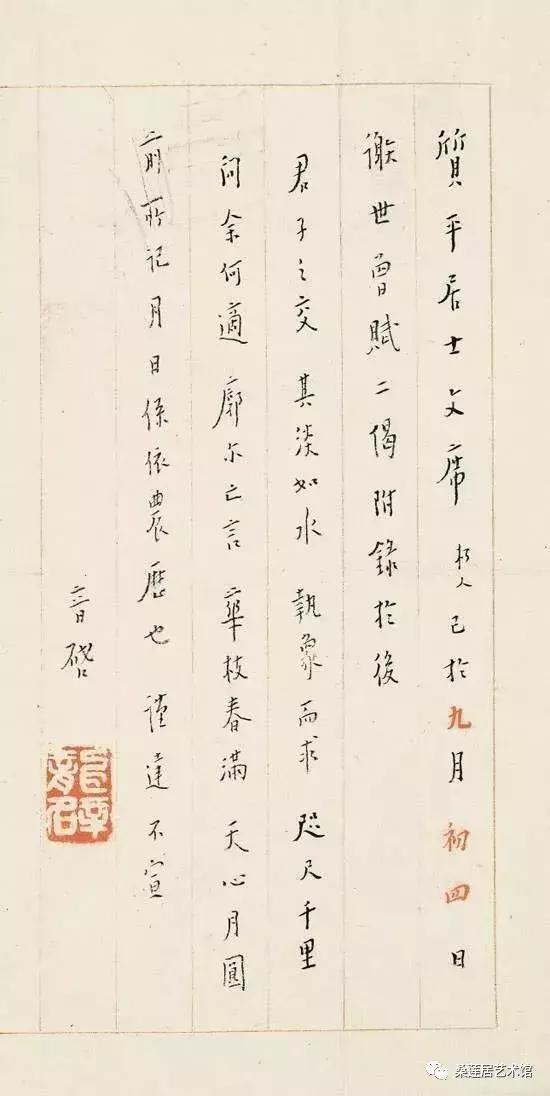 質平居士文席 朽人已於九月初四日
謝世曾賦二偈附錄於後
君子之交 其淡如水 執象而求 咫尺千里
問余何適 廓尔亡言 華枝春滿 天心月圓
前所記月日係依農歷也 謹達不宣
音啓
桑莲居艺术馆